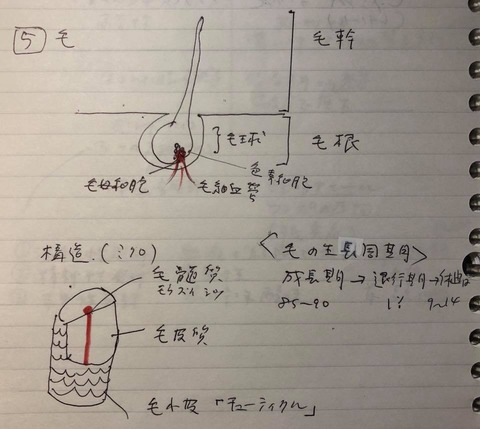 5 毛
毛幹
毛球
毛根
色素細胞
毛母細胞
毛細血管
構造.(ミクロ)
毛髄質
モウズイシツ
毛皮質
毛小皮「キューティクル」
<毛の生長周期>
成長期→退行期→休止
85〜90 1% 9〜14